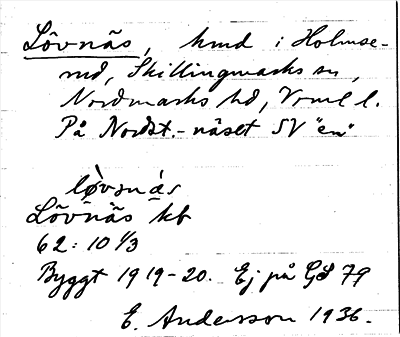 Lövnäs, hmd i Holmse-
rud, Skillingmarks sn,
Nordmarks hd, Vrml l.
På Nordst.-näset SV "en"
lø̀vsnás
Lövnäs kb
62:10 1/3
Byggt 1919-20. Ej på GS 79
E. Andersson 1936.